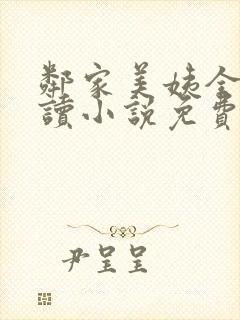 鄰家美姨全
讀小說免費
尹呈呈